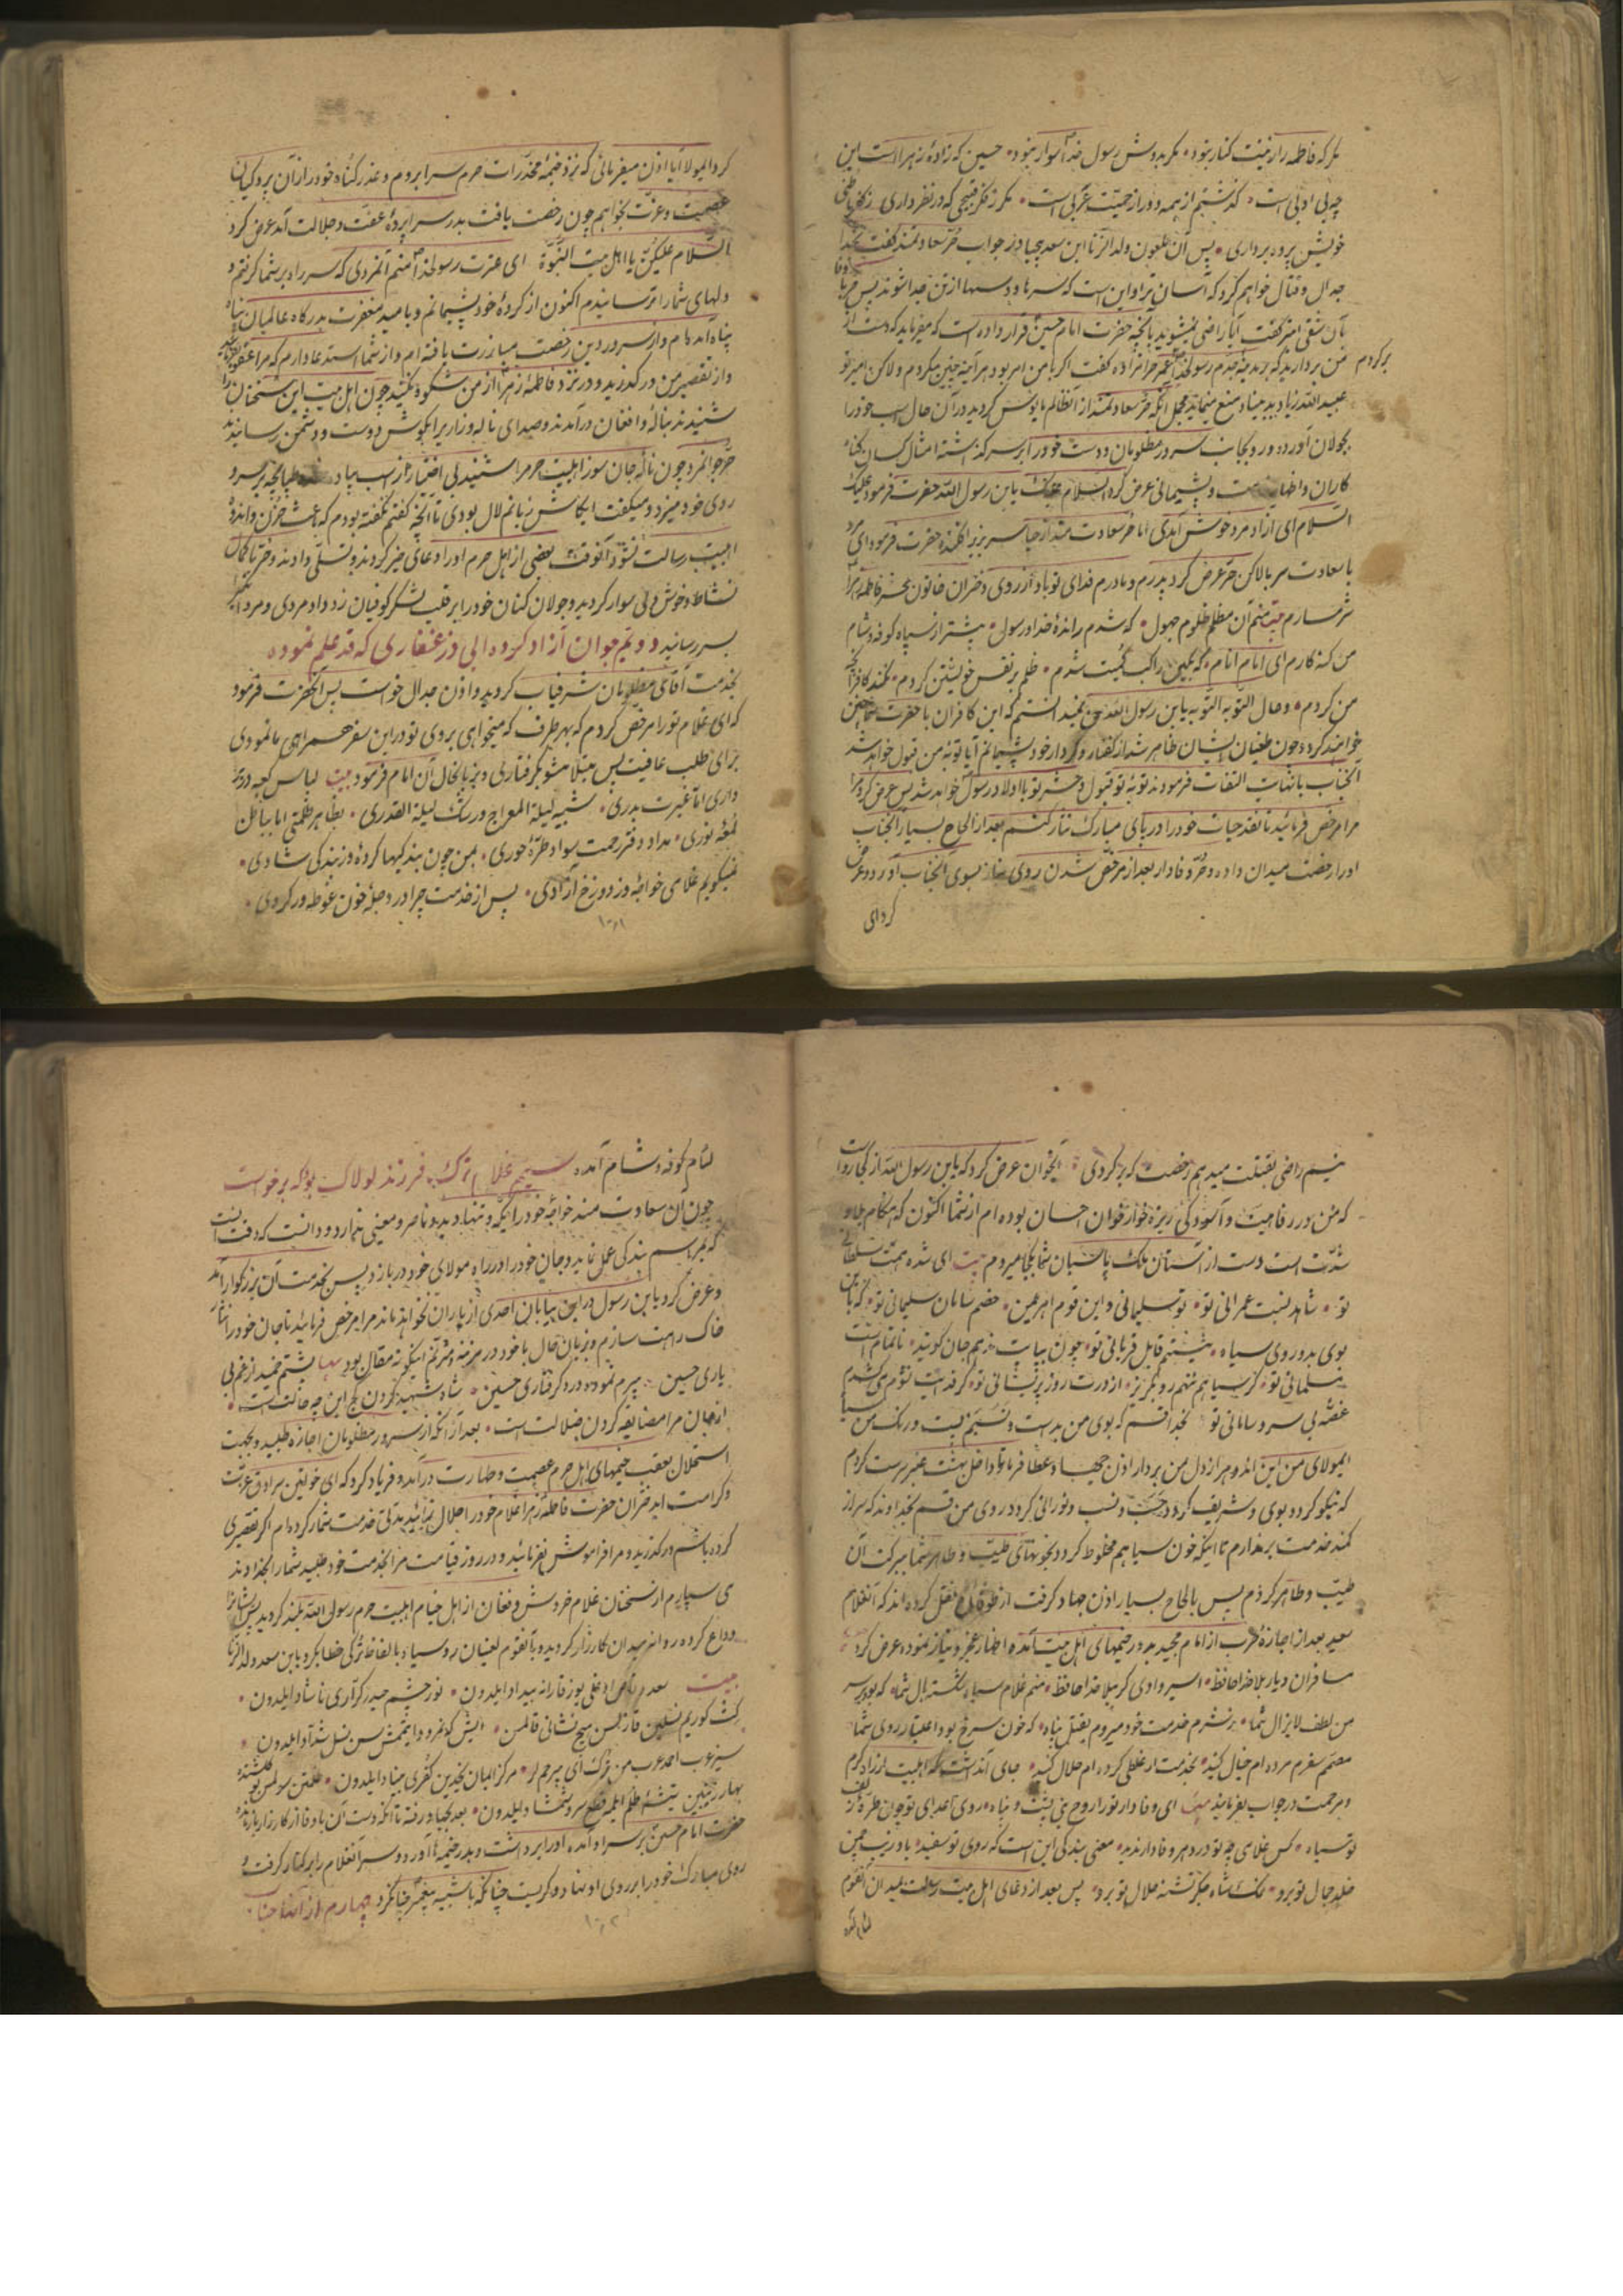 مگر که فاطمه را زینت کنار نبود مگر بدوش رسول خدا سوار نبود حسین که زادهٔ زهراست این
چه بی ادبی است گذشتم از همه دور از حمیت عربی است مگر ز فکر قبیحی که در نظر داری ز کفر باطنی
خویش پرده برداری پس آن ملعون ولد الزنا ابن سعد بیحیا در جواب حر سعادتمند گفت بخدا
جدال و قتال خواهم کرد که آسان تر او این است که سرها و دستها از تن جدا شوند پس حر با وفا
بآن شقی ابتر گفت آیا راضی نمیشوید بآنچه حضرت امام حسین قرار داده است که میفرماید که دست از
من بردارید که بمدینهٔ جدم رسولخدا برگردم عمر حرامزاده گفت اگر با من امر بود هر آینه چنین میکردم ولاکن امیر تو
عبید الله زیاد بد بنیاد منع مینماید مجمل آنکه حر سعادتمند از آنظالم مایوس گردید در آن حال اسب خود را
بجولان آورده رو بجانب سرور مظلومان و دست خود را بر سر گذاشته امثال کسان گناه
کاران و اظهار ندامت و پشیمانی عرض کرد السلام علیک یابن رسول الله حضرت فرمود علیک
السلام ای آزاد مرد خوش آمدی اما حر سعادتمند از حیا سر بزیر افکنده حضرت فرمود ای مرد
با سعادت سر بالا کن حر عرض کرد پدرم و مادرم فدای تو باد از روی دختران خاتون محشر فاطمه زهرا
شرمسارم بیت منم آن مظلم ظلوم جهول که شدم راندهٔ خدا و رسول پیشتر از سپاه کوفه و شام
من گنه کارم ای امام انام که بگیتی راکب کمیت شدم ظلم بر نفس خویشتن کردم نکند کافر آنچه
من کردم و حال التوبه التوبه یابن رسول الله من نمیدانستم که این کافران با حضرت شما چنین
خواهند کرد و چون طغیان ایشان ظاهر شد از گفتار و کردار خود پشیمانم آیا توبهٔ من قبول خواهد شد
آنجناب بانهایت التفات فرمودند توبهٔ تو قبول و حشر تو با اولاد رسول خواهد شد پس عرض کرد مرا
مرا مرخص فرمائید تا نقد حیات خود را در پای مبارک نثار کنم بعد از الحاح بسیار آنجناب
او را رخصت میدان داده و حر وفادار بعد از مرخص شدن روی نیاز بسوی آنجناب آورد و عرض
کرد ای
کرد ایمولا آیا اذن میفرمائی که نزد خیمهٔ مخدرات حرم سرا بروم و عذر گناه خود را از آن پردگیان
عصمت و عزت بخواهم چون رخصت یافت بدر سراپردهٔ عفت و جلالت آمد عرض کرد
السلام علیکن یا اهل بیت النبوة ای عترت رسولخدا منم آنمردی که سر راه بر شما گرفتم و
دلهای شما را ترسانیدم اکنون از کردهٔ خود پشیمانم و بامید مغفرت بدرگاه عالمیان پناه
پناه آمده ام و از سرور دین رخصت مبارزت یافته ام و از شما استدعا دارم که مرا عفو فرمائید
و از تقصیر من درگذرید و در نزد فاطمهٔ زهرا از من شکوه نکنید چون اهل بیت این سخنان را
شنیدند بناله و افغان در آمدند و صدای ناله و زاری را بگوش دوست و دشمن رسانیدند
حر جوانمرد چون نالهٔ جان سوز اهلبیت حرم را شنید بی اختیار از اسب پیاده شده طپانچه بر سر و
روی خود میزد و میگفت ایکاش زبانم لال بودی تا آنچه گفتم نگفته بودم که باعث حزن و اندوه
اهلبیت رسالت نشود آنوقت بعضی از اهل حرم او را دعای خیر کردند و تسلی دادند و حر با کمال
نشاط و خوش دلی سوار گردید و جولان کنان خود را بر قلب لشکر کوفیان زد و داد مردی و مردانگی
بسر رسانید دویم جوان آزاد کردهٔ ابی ذر غفاری که قد علم نموده
بخدمت آقای مظلومان شرفیاب گردید و اذن جدال خواست پس آنحضرت فرمود
که ای غلام تو را مرخص کردم که بهر طرف که میخواهی بروی تو در این سفر همراهی ما نمودی
برای طلب عافیت پس مبتلا مشو بگرفتاری و بزبانحال آن امام فرمود بیت لباس کعبه در بر
داری اما غیرت بدری شبیه لیلة المعراج و رشک لیلة القدری بظاهر ظلمتی اما بباطن
لمعهٔ نوری مداد دفتر رحمت سواد طرهٔ حوری بمن چون بندگیها کردهٔ در بندگی شادی
نمیگویم غلامی خواجهٔ وز دوزخ آزادی پس از خدمت چرا در دجلهٔ خون غوطه ور گردی
۱۰۱
نیم راضی بقتلت میدهم رخصت که برگردی آنجوان عرض کرد که یابن رسول الله از کجا رواست
که من در رفاهیت و آسودگی ریزه خوار خوان احسان بوده ام از شما اکنون که هنگام بلا و
شدت است دست از آستان ملک پاسبان شما بکجا میروم بیت ای شده همت سلطانی
تو شاهد نسبت عمرانی تو تو سلیمانی و این قوم اهرمن خصم سامان سلیمانی تو گر باین
بوی بد و روی سیاه نیستم قابل قربانی تو چون بپایت ندهم جان گویند ناتمام است
مسلمانی تو گر سیاهم منهم رو مگریز از درت روز پریشانی تو گر فدایت نشوم می کشدم
غصهٔ بی سر و سامانی تو بخدا قسم که بوی من بد است و نسبم پست و رنگ من سیاه
ایمولای من این اندوه را از دل من بردار اذن جهاد عطا فرما تا داخل بهشت عنبر سرشت گردم
که نیکو گردد بوی و شریف گردد حسب و نسب و نورانی گردد روی من قسم بخداوند که سر از
کمند خدمت بر ندارم تا اینکه خون سیاهم مخلوط گردد بخونهای طیب و طاهر شما ببرکت آن
طیب و طاهر گردم پس بالحاح بسیار اذن جهاد گرفت نقل کرده اند که آنغلام
سعید بعد از اجازهٔ حرب از امام مجید بدر خیمهای اهل بیت آمده اظهار عجز و نیاز نموده عرض کرد
مسافران دیار بلا خداحافظ اسیر وادی کربلا خداحافظ منم غلام سیاه شکسته بال شما که بود بر سر
من لطف لایزال شما برشرم خدمت خود میروم بقتل پناه که خون سرخ بود اعتبار روی شما
مصمم سفرم مرده ام خیال کنید بخدمت ار غلطی کرده ام حلال کنید جای آنداشت که اهلبیت از راه کرم
و مرحمت در جواب بفرمایند بیت ای وفادار تو را روح نبی پشت و پناه روی اعدای تو چون طرهٔ زلف
تو سیاه کس غلامی چو تو در دهر وفادار ندید معنی بندگی این است که روی تو سفید باد زیب چمن
خلد جمال تو برو نمک شاه جگر تشنه حلال تو برو پس بعد از دعای اهل بیت رسالت بمیدان آنقوم
لئام کوفه
لئام کوفه و شام آمده سیم غلام ترک فرزند لولاک بود که برخواست
چون آن سعادت مند خواجهٔ خود را یکه و تنها دید و ناصر و معینی ندارد و دانست که وقت آنست
که بمراسم بندگی عمل نماید و جان خود را در راه مولای خود در بازد پس بخدمت آن بزرگوار آمد
و عرض کرد یابن رسول در این بیابان احدی از یاران نخواهند ماند مرا مرخص فرمائید تا جان خود را نثار
خاک راهت سازم و بزبان حال با خود در مرثیه و مترنم اینگونه مقال بود پشتم خمید از غم بی
یاری حسین پیرم نموده درد گرفتاری حسین شاه شهید گردون کج این چه حالت است
از جان مرا مضایقه کردن ضلالت است بعد از آنکه از سرور مظلومان اجازه طلبید و بجهت
استحلال بعقب خیمهای اهل حرم عصمت و طهارت در آمد و فریاد کرد که ای خواتین سرادق عزت
و کرامت ای دختران حضرت فاطمهٔ زهرا غلام خود را حلال نمائید مدتی خدمت شما کرده ام اگر تقصیری
کرده باشم درگذرید و مرا فراموش نفرمائید و در روز قیامت مرا بخدمت خود طلبید شما را بخداوند
می سپارم از سخنان غلام خروش و فغان از اهل خیام اهلبیت حرم رسول الله بلند گردید پس شاه را
وداع کرده روانه میدان کارزار گردید و بآنقوم لعینان رو سیاه بالفاظ ترکی خطاب کرد یابن سعد ولد الزنا
بیت سعد وقاص اوغلی یوز قارانه بیداد ایلدون نور چشم حیدر کراری ناشاد ایلدون
کشت کوریم نسلین قازلمسن هیچ نشانی قالمسن
سیز عرب احمد عرب من ترک ای بیرحم لر مرکز ایمان یخدین کفری بنیاد ایلدون
بهار زینبین تیشهٔ ظلم ایله قطع سرو شمشاد ایلدون بعد بجهاد رفته تا آنکه دست آن باوفا از کارزار باز مانده
حضرت امام حسین بر سر او آمده او را برداشت و بدر خیمه ها آورد و سر آنغلام را بر کنار گرفت و
روی مبارک خود را بر روی او نهاد و گریست چنانکه با شبیه پیغمبر چنان کرد چهارم از آنها جناب
۱۰۲